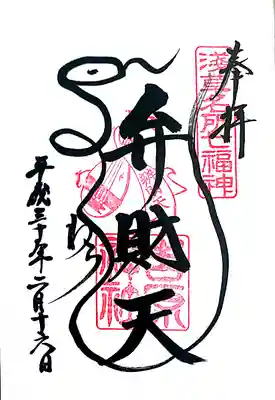 奉拝
浅草名所七福神
弁財天
吉原
神社
平成三十年二月十六日